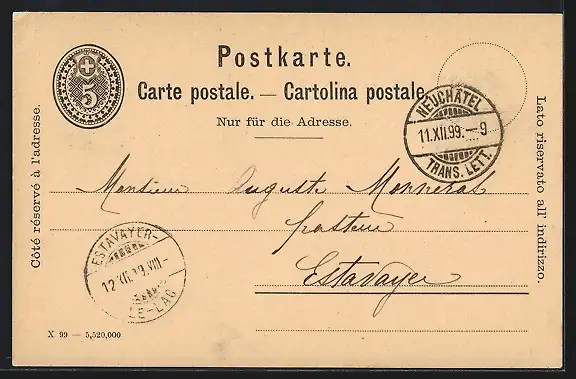 Postkarte.
5
Carte postale. — Cartolina postale.
Nur für die Adresse.
NEUCHÂTEL
11.XII.99.–9
TRANS. LETT.
Côté réservé à l'adresse.
Lato riservato all' indirizzo.
Monsieur Auguste Monnerat
pasteur
Estavayer
ESTAVAYER-
12.XII.99.VIII–
LE-LAC
X 99 — 5,520,000